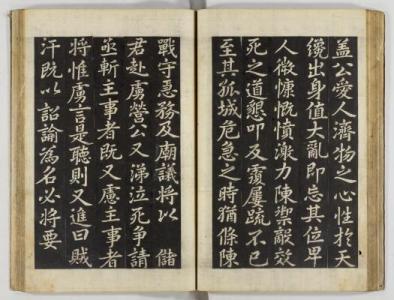 蓋公愛人濟物之心性於天
纔出身值大亂即忘其位卑
人微慷慨憤激力陳禦敵效
死之道懇叩及竄屢䟽不已
至其孤城危急之時猶條陳
戰守惡務及廟議將以 儲
君赴虜營公又涕泣死争請
亟斬主事者既又慮主事者
將惟虜言是聽則又進曰賊
汗既以詔諭為名必將要